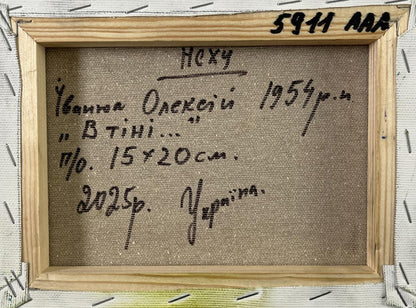 5911 AAA
НСХУ
Іванюк Олексій 1954р.н
„В тіні..."
п/о. 15×20см.
2025р. Україна.